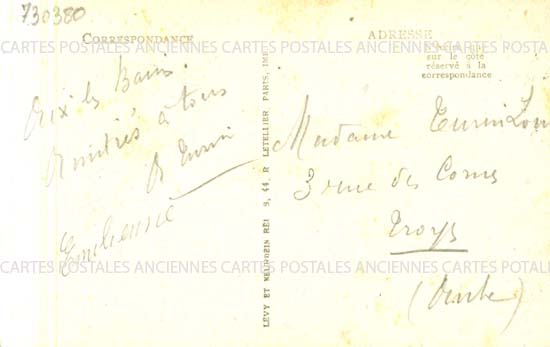 730380
CORRESPONDANCE
Aix les Bains
Amitiés à tous
Turin
Emilienne
LÉVY ET NEURDEIN RÉUNIS, 44, R LETELLIER, PARIS, IMP
ADRESSE
sur le côté
réservé à la
correspondance
Madame Turin
3 rue des Cornes
Troyes
(Aube)
CARTES POSTALES ANCIENNES CARTES POSTALES ANCIENNES CARTES POSTALES
CARTES POSTALES ANCIENNES CARTES POSTALES ANCIENNES CARTES POSTALES